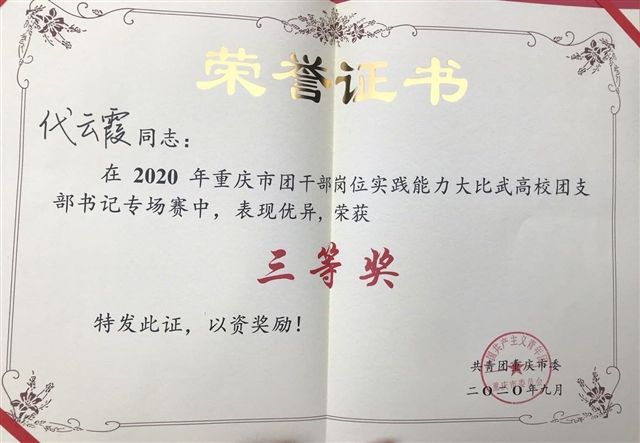 荣誉证书
代云霞同志：
在 2020 年重庆市团干部岗位实践能力大比武高校团支
部书记专场赛中，表现优异，荣获
三等奖
特发此证，以资奖励！
共青团重庆市委
二〇二〇年九月